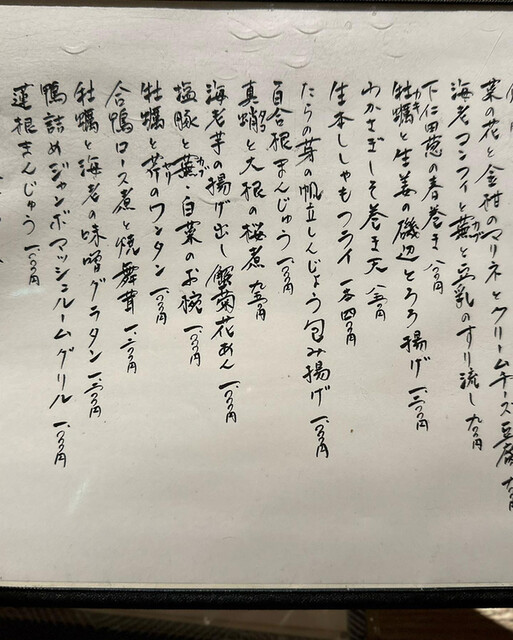 菜の花と金柑のマリネとクリームチーズ豆腐
海老マンフィと蕪と豆乳のすり流し 九〇〇円
下仁田葱の春巻き 八〇〇円
牡蠣と生姜の磯辺とろろ揚げ 一、二〇〇円
わかさぎしそ巻き天
生本ししゃもフライ
たらの芽の帆立しんじょう包み揚げ 一、〇〇〇円
百合根まんじゅう 一、〇〇〇円
真蛸と大根の桜煮 九五〇円
海老芋の揚げ出し蟹菊花あん 一、〇〇〇円
塩豚と蕪・白菜のお椀 一、〇〇〇円
牡蠣と芹のワンタン 一、〇〇〇円
合鴨ロース煮と焼舞茸 一、二〇〇円
牡蠣と海老の味噌グラタン 一、二〇〇円
鴨詰めジャンボマッシュルームグリル 一、〇〇〇円
蓮根まんじゅう 一、〇〇〇円